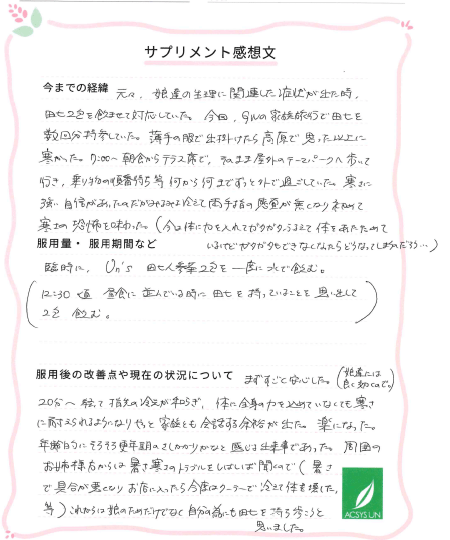 サプリメント感想文
今までの経緯 元々、娘達の生理に関連した症状が出た時、
田七2包を飲ませて対応していた。今回、グアムの家族旅行で田七を
数回分持参していた。薄手の服で出掛けたら高原で思った以上に
寒かった。7:00〜朝食からテラス席で、そのまま屋外のテーマパークへ歩いて
行き、乗り物の順番待ち等何から何までずっと外で過ごしていた。寒さに
強い自信があったのだがみるみる冷えて両手指の感覚が無くなり初めて
寒さの恐怖を味わった。(今は体に力を入れてガタガタふるえて体をあたためて
いるけどガタガタもできなくなったらどうなってしまうんだろう…)
服用量・服用期間など
臨時に、Un's 田七人参2包を一度に水で飲む。
(12:30頃 昼食に並んでいる時に田七を持っていることを思い出して
2包 飲む。)
服用後の改善点や現在の状況について まずすごく安心した。(娘達には
良く効くので。)
20分〜経って指先の冷えが和らぎ、体に全身の力を込めていなくても寒さ
に耐えられるようになりやっと家族とも会話する余裕が出た。楽になった。
年齢的にそろそろ更年期のさしかかりかなと感じる出来事であった。周囲の
お姉様方からは暑さ寒さのトラブルをしばしば聞くので(暑さ
で具合が悪くなりお店に入ったら今度はクーラーで冷えて体を壊した,
等)これからは娘のためだけでなく自分の為にも田七を持ち歩こうと
思いました。
ACSYS UN